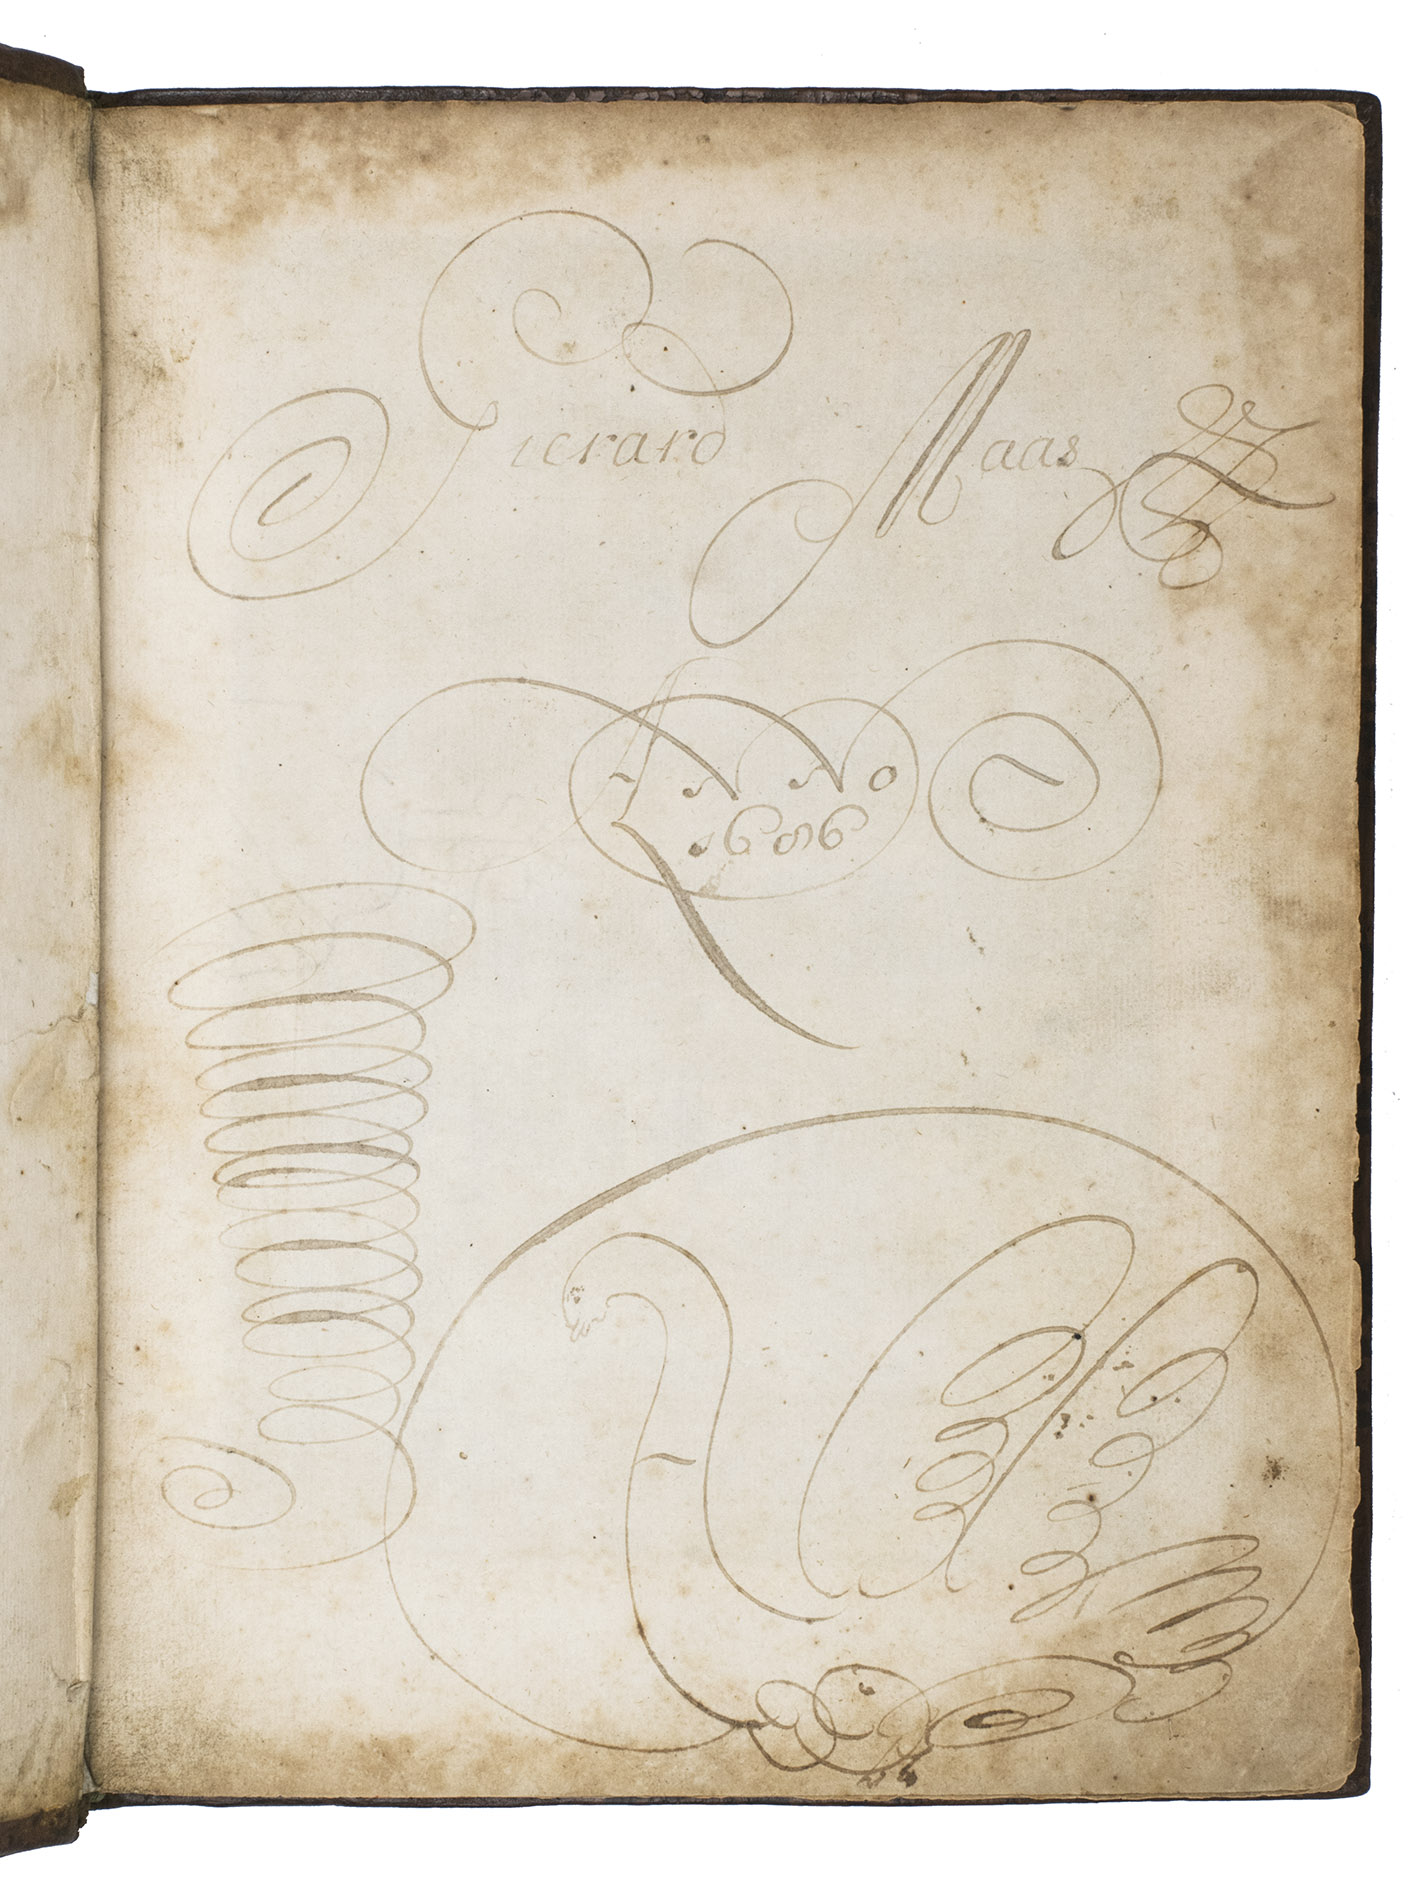 Gierard Maas
ANNo
1686